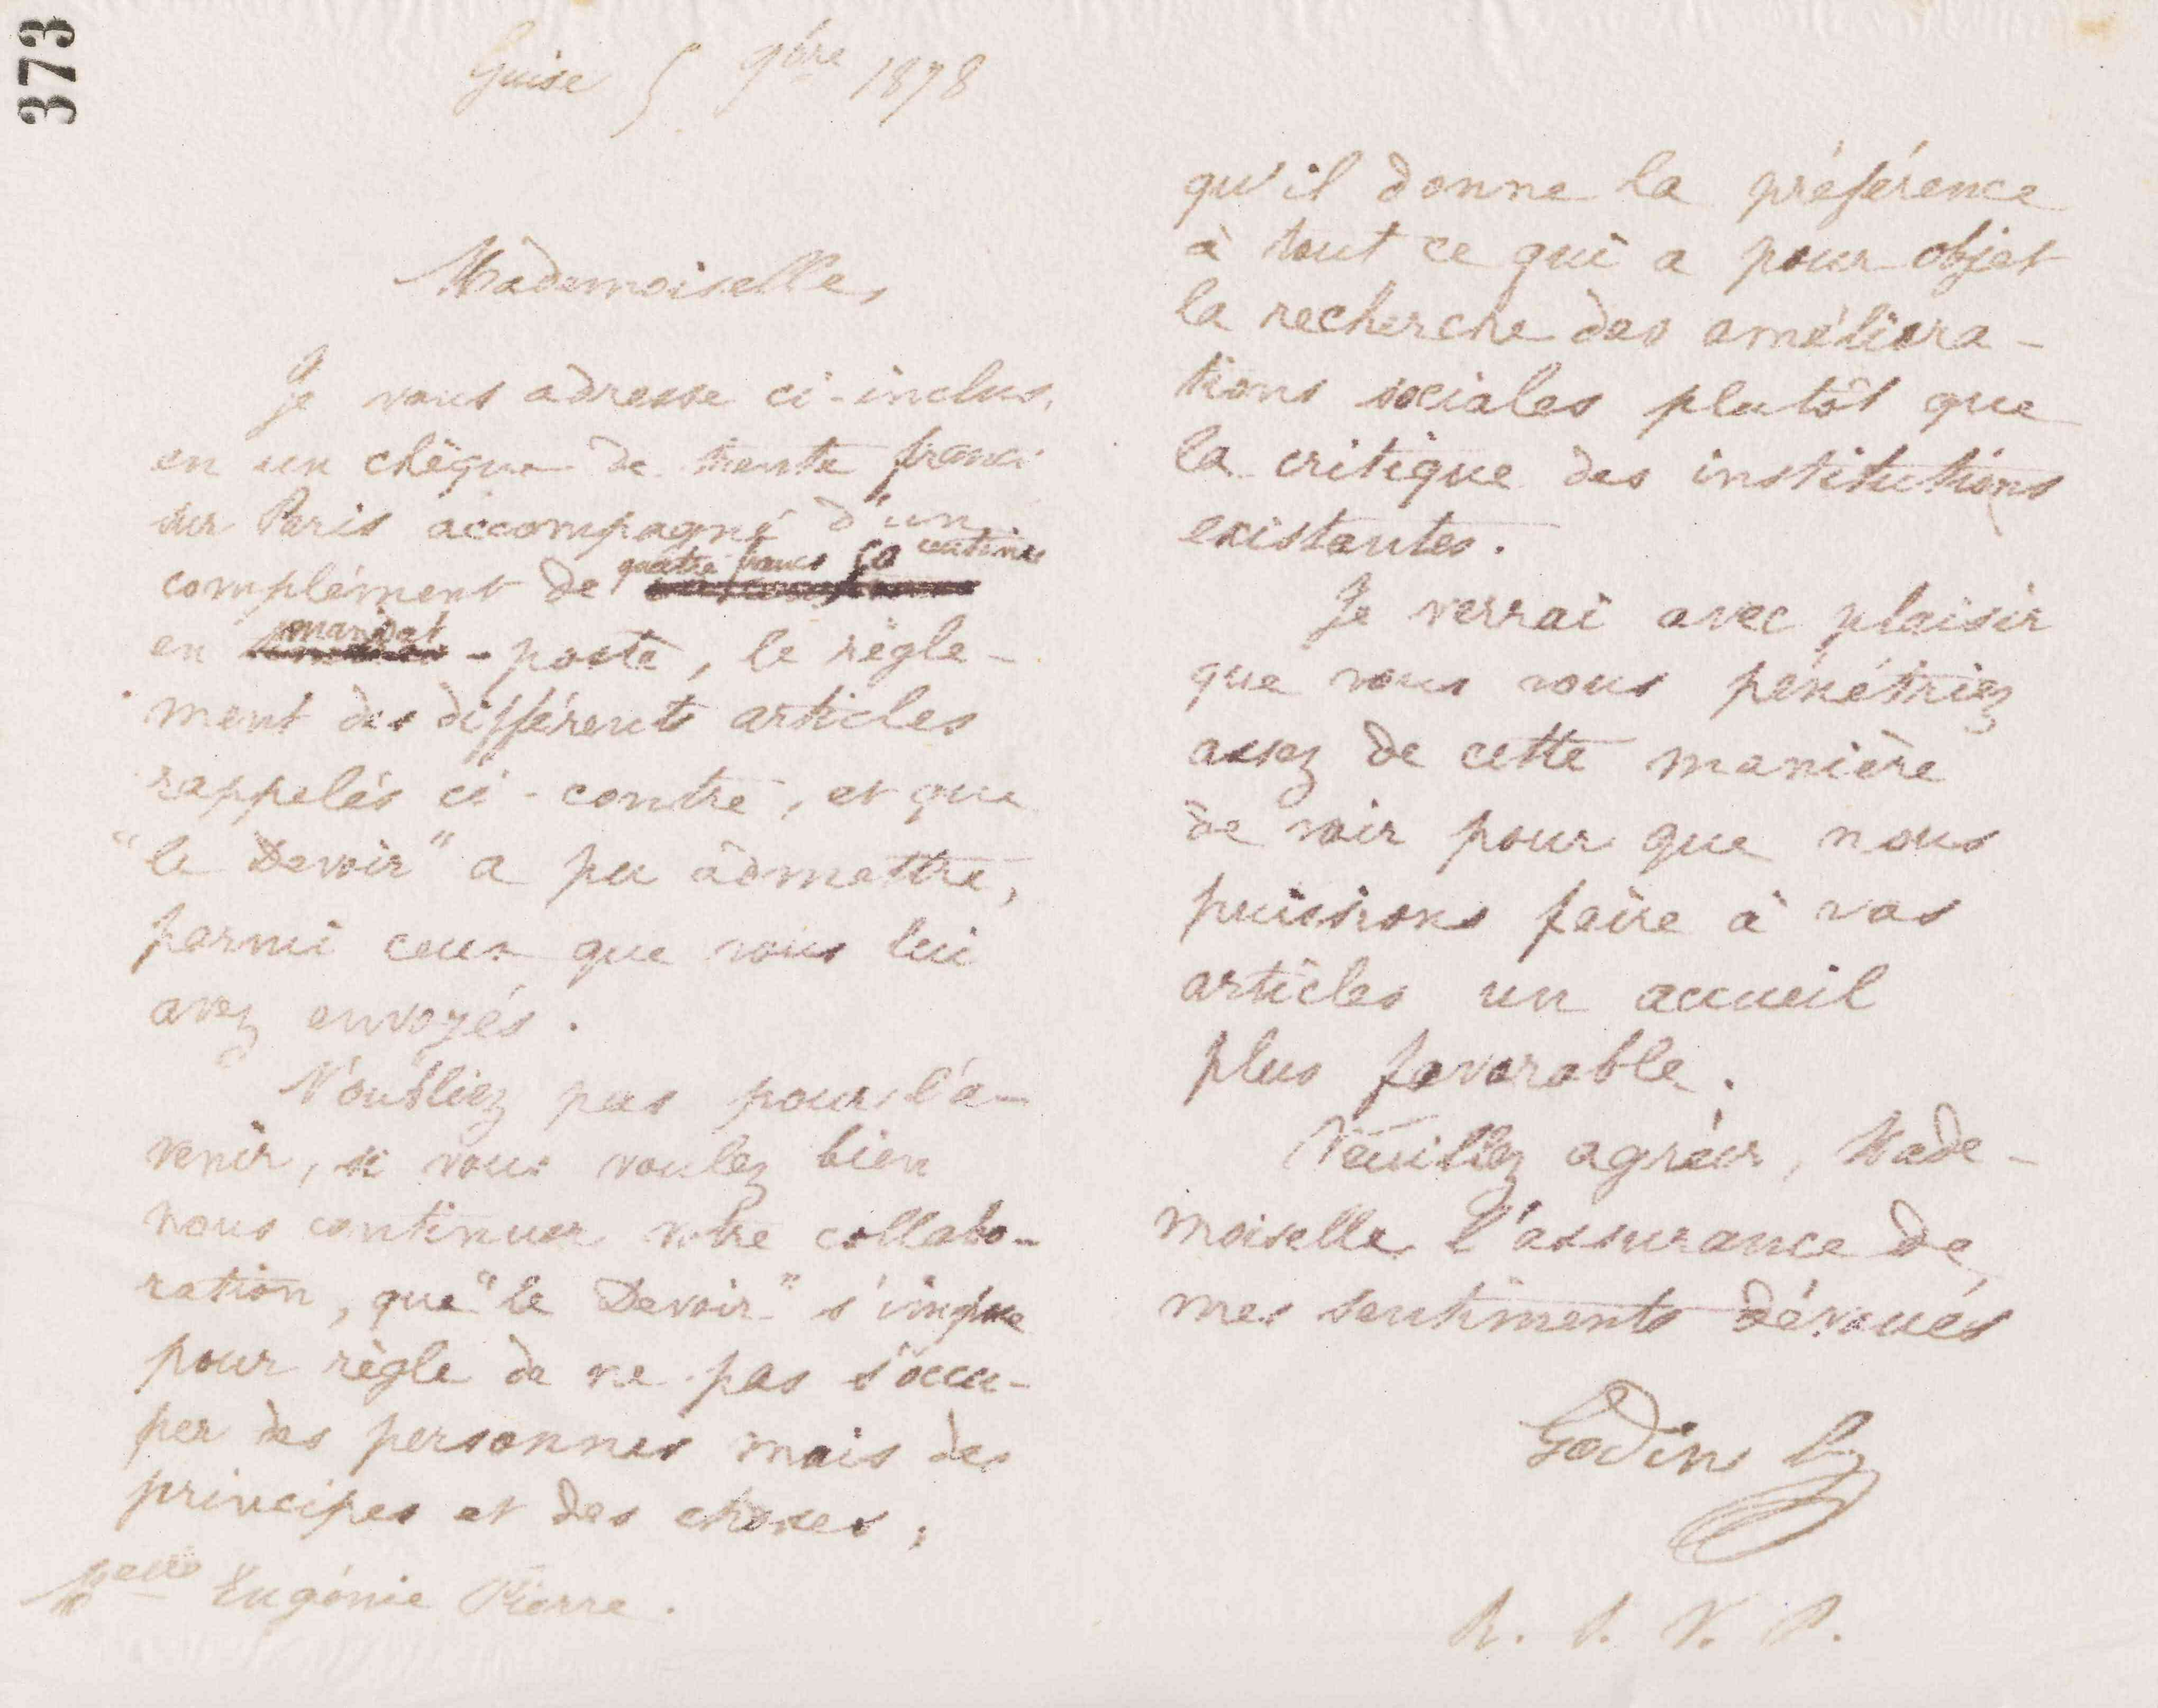 373
Guise 5 9bre 1878
Mademoiselle,
Je vous adresse ci-inclus,
en un chèque de trente francs
sur Paris accompagné d'un
complément de quatre francs 50 centimes
en mandat-poste, le règle-
ment des différents articles
rappelés ci-contre, et que
"le Devoir" a pu admettre,
parmi ceux que vous lui
avez envoyés.
N'oubliez pas pour l'a-
venir, si vous voulez bien
nous continuer votre collabo-
ration, que "le Devoir" s'impose
pour règle de ne pas s'occu-
per des personnes mais des
principes et des choses;
Melle Eugénie Pierre.
qu'il donne la préférence
à tout ce qui a pour objet
la recherche des améliora-
tions sociales plutôt que
la critique des institutions
existantes.
Je verrai avec plaisir
que vous vous pénétriez
assez de cette manière
de voir pour que nous
puissions faire à vos
articles un accueil
plus favorable.
Veuillez agréer, Made-
moiselle, l'assurance de
mes sentiments dévoués
Godin
R. S. V. P.